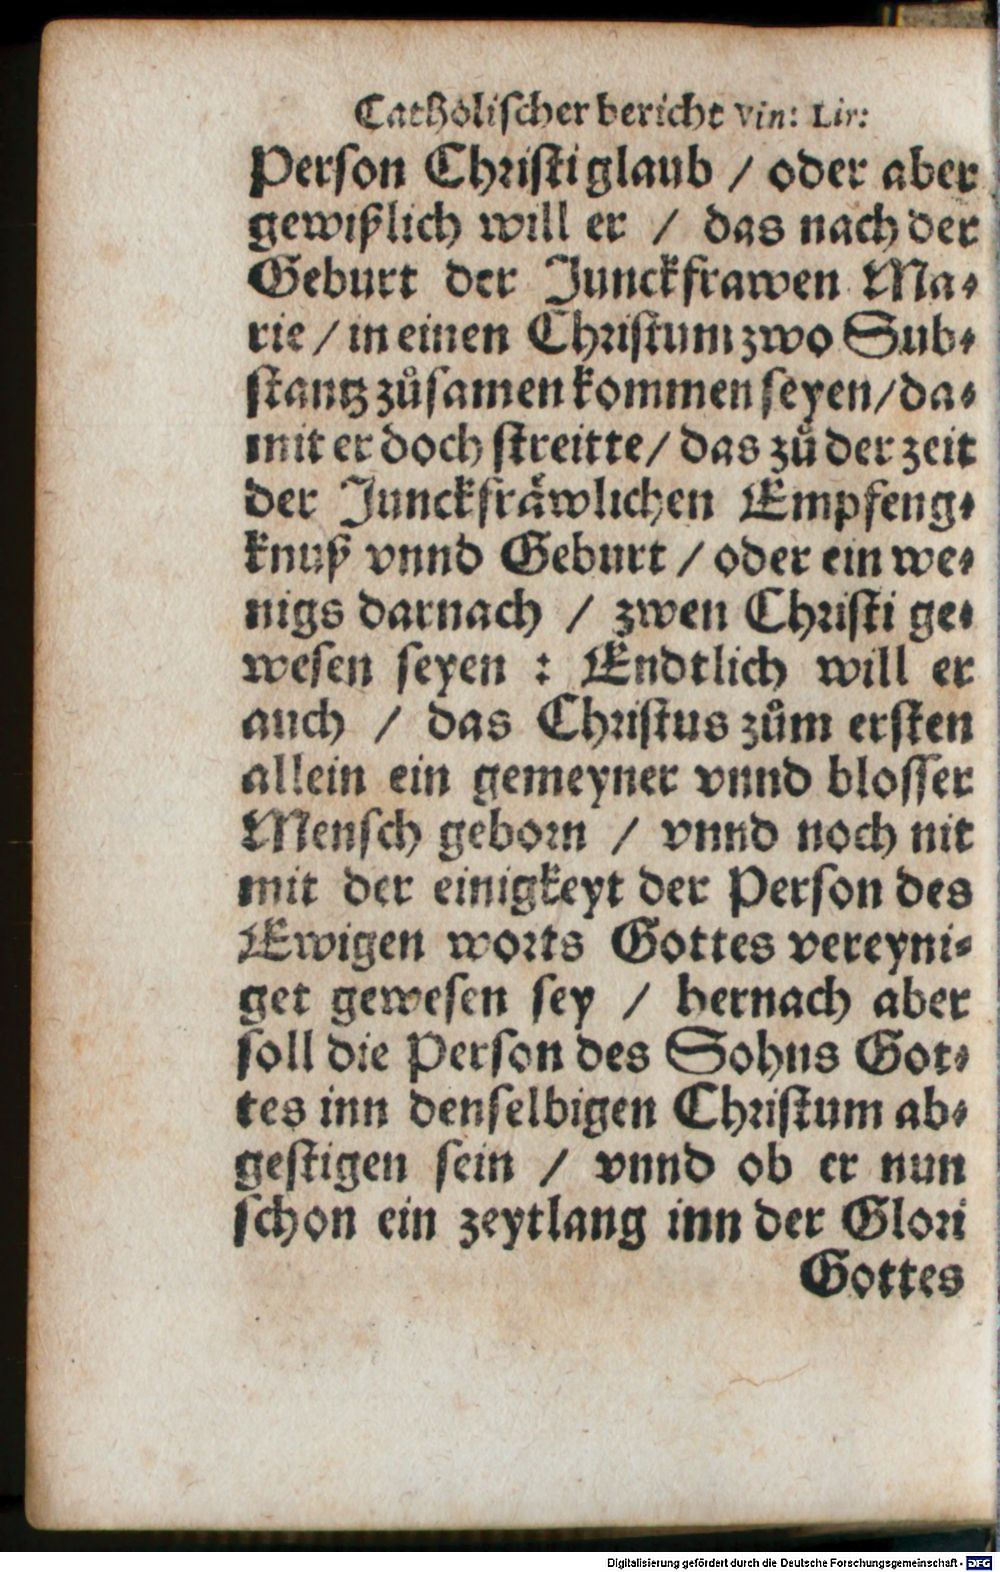 Catholischer bericht Vin: Lir:
Person Christi glaub / oder aber
gewißlich will er / das nach der
Geburt der Junckfrawen Ma⸗
rie / in einen Christum zwo Sub⸗
stantz zůsamen kommen seyen / da⸗
mit er doch streitte / das zů der zeit
der Junckfraͤwlichen Empfeng⸗
knuß vnnd Geburt / oder ein we⸗
nigs darnach / zwen Christi ge⸗
wesen seyen : Endtlich will er
auch / das Christus zům ersten
allein ein gemeyner vnnd blosser
Mensch geborn / vnnd noch nit
mit der einigkeyt der Person des
Ewigen worts Gottes vereyni⸗
get gewesen sey / hernach aber
soll die Person des Sohns Got⸗
tes inn denselbigen Christum ab⸗
gestigen sein / vnnd ob er nun
schon ein zeytlang inn der Glori
Gottes
Digitalisierung gefördert durch die Deutsche Forschungsgemeinschaft - DFG